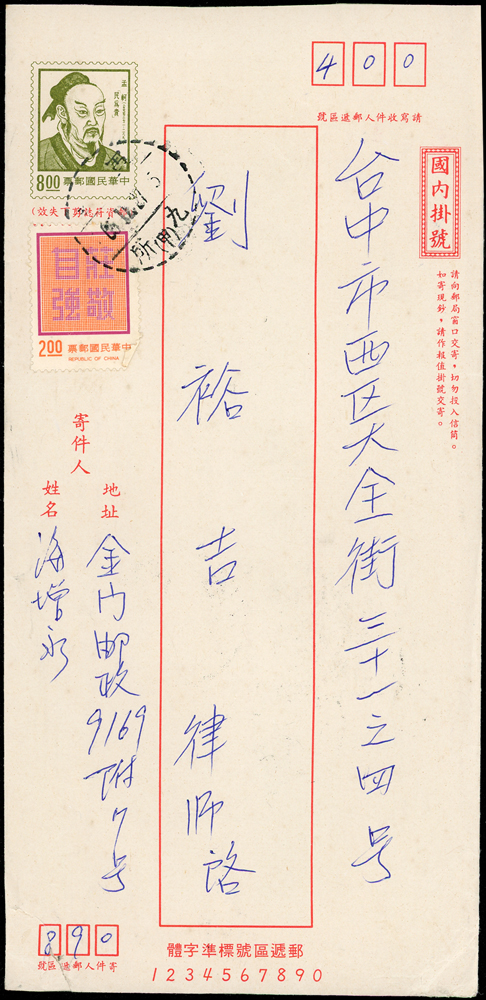 400
請寫收件人郵遞區號
國內掛號
請向郵局窗口交寄，切勿投入信筒。
如寄現鈔，請作報值掛號交寄。
台中市西区大全街三十一之四号
劉裕吉律师啟
孟軻
民為貴
8.00
中華民國郵票
莊敬
甘強
2.00
中華民國郵票
REPUBLIC OF CHINA
九
(甲)
所
寄件人
地址
金门邮政9169附7号
姓名
海增永
890
寄件人郵遞區號
郵遞區號標準字體
1234567890